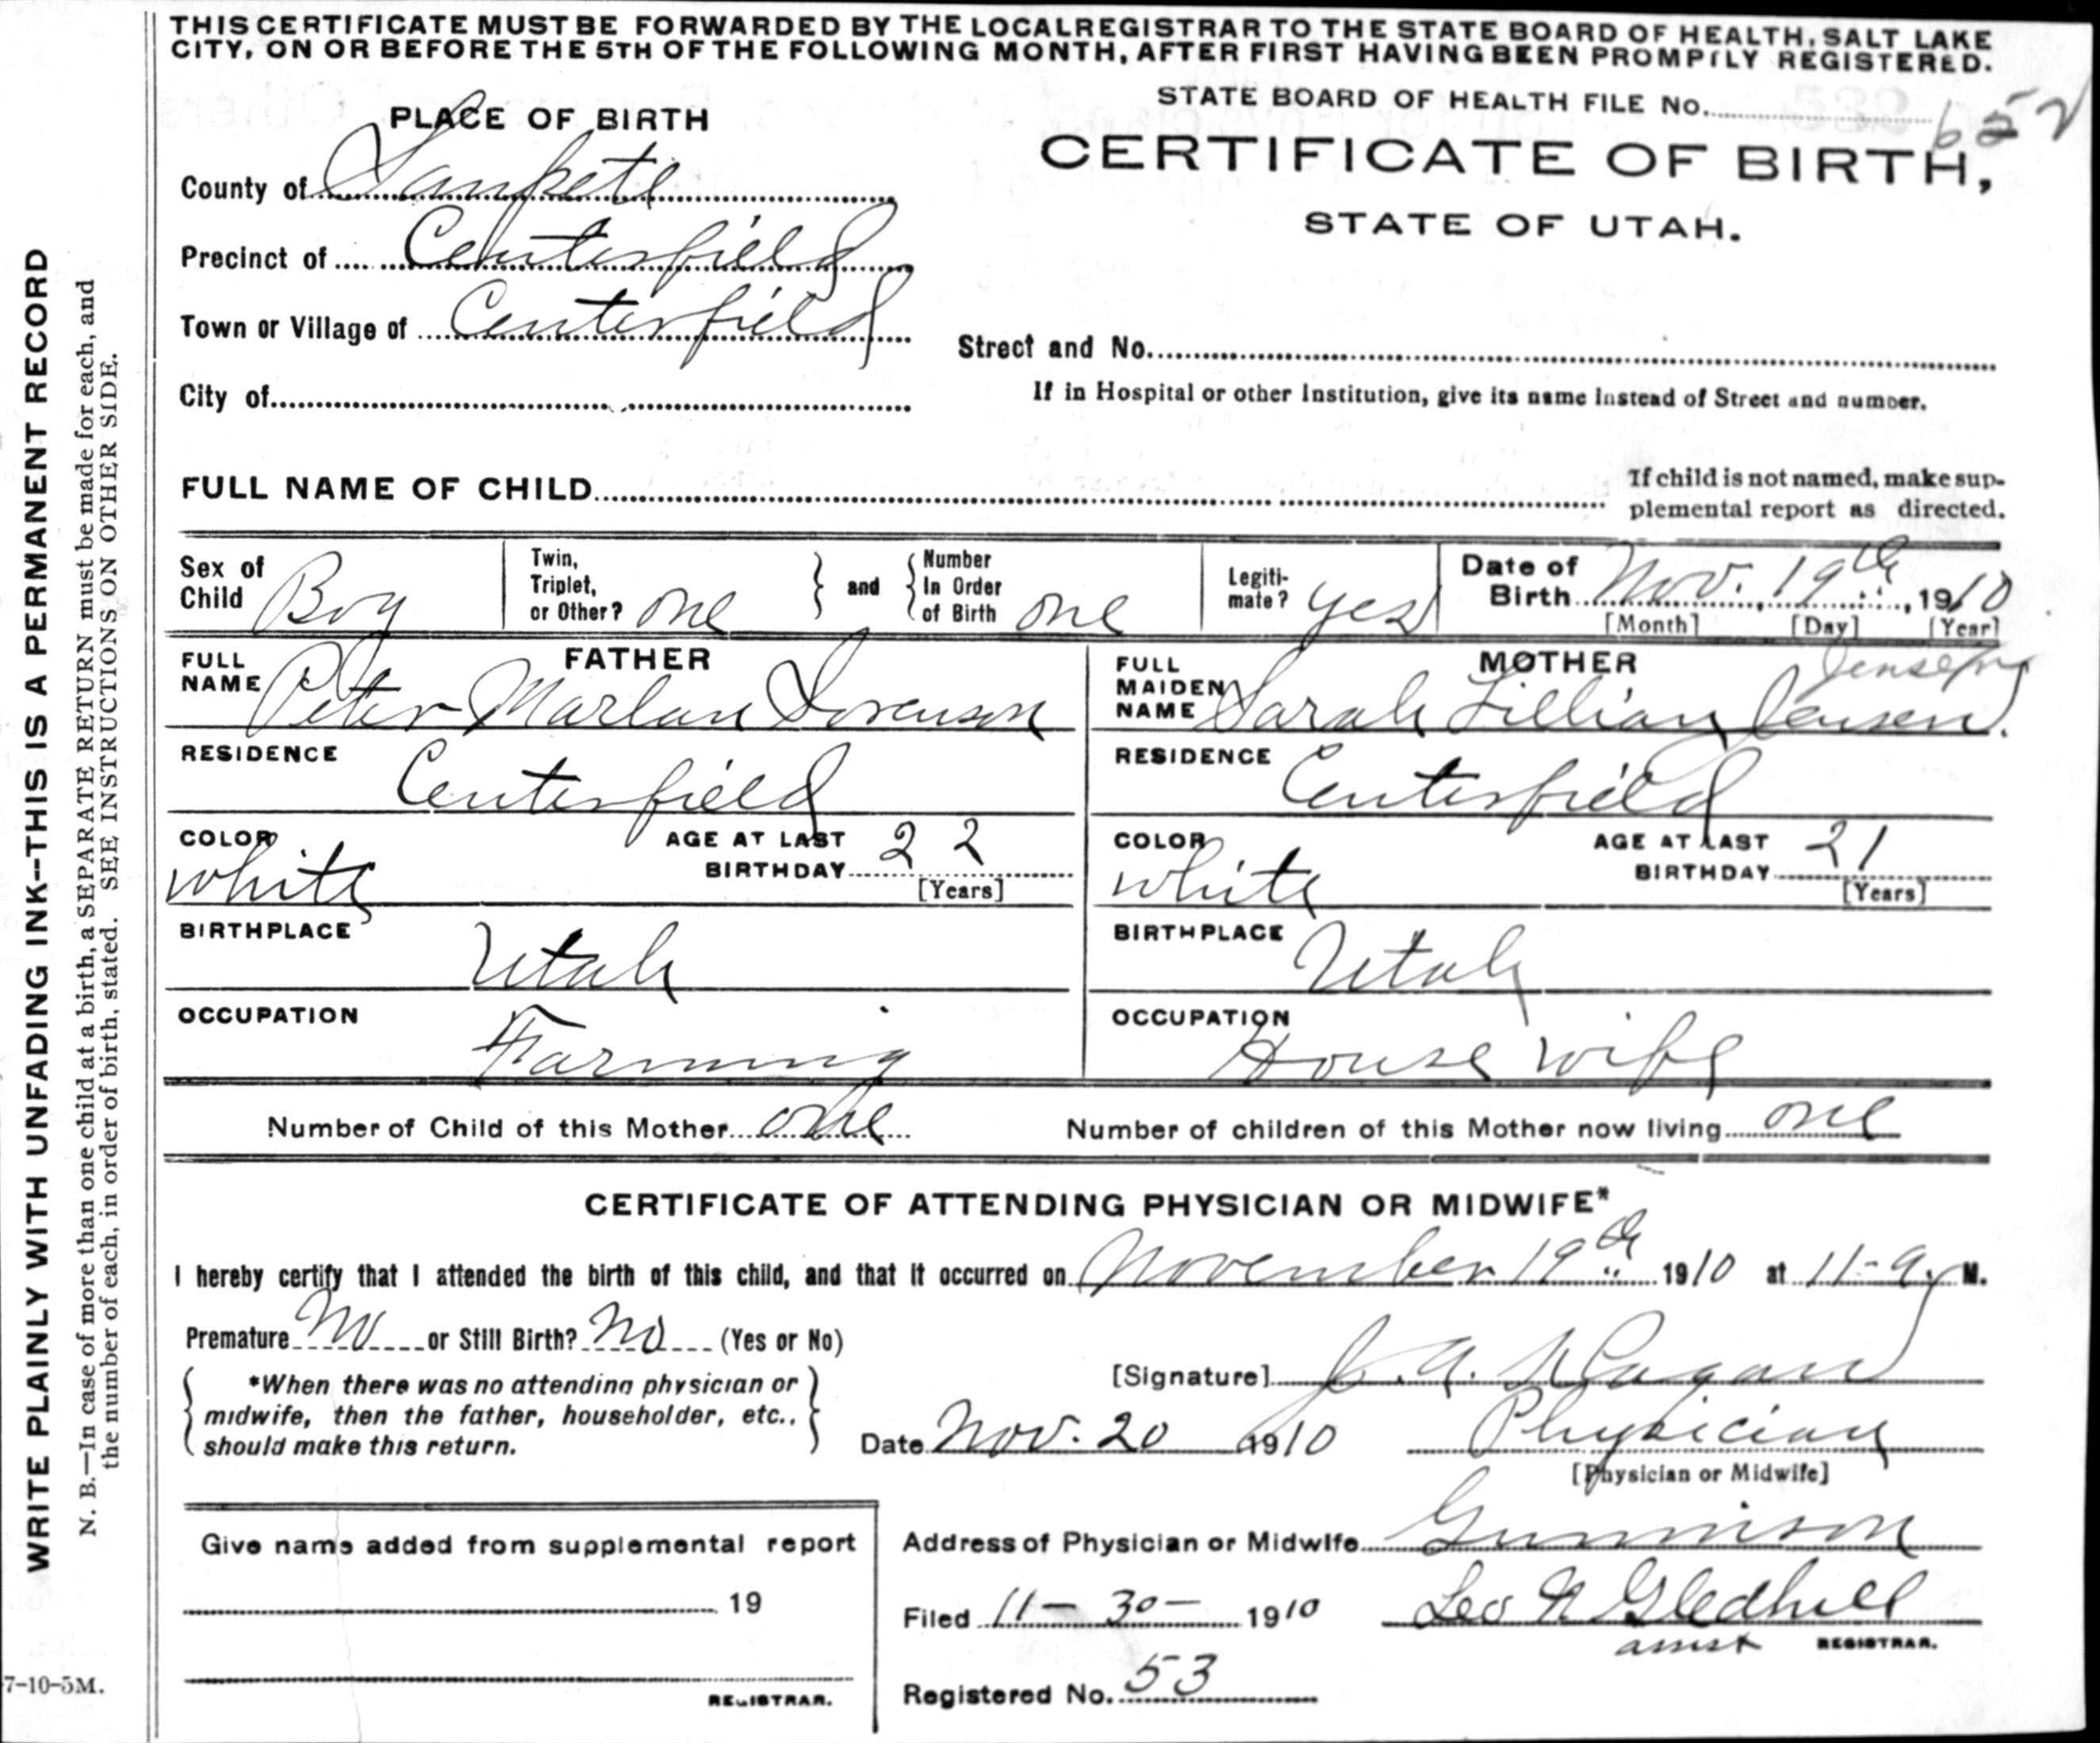 THIS CERTIFICATE MUST BE FORWARDED BY THE LOCAL REGISTRAR TO THE STATE BOARD OF HEALTH, SALT LAKE
CITY, ON OR BEFORE THE 5TH OF THE FOLLOWING MONTH, AFTER FIRST HAVING BEEN PROMPTLY REGISTERED.
WRITE PLAINLY WITH UNFADING INK--THIS IS A PERMANENT RECORD
N. B.—In case of more than one child at a birth, a SEPARATE RETURN must be made for each, and
the number of each, in order of birth, stated. SEE INSTRUCTIONS ON OTHER SIDE.
7-10-5M.
PLACE OF BIRTH
County of Sanpete
Precinct of Centerfield
Town or Village of Centerfield
City of
STATE BOARD OF HEALTH FILE No. 652
CERTIFICATE OF BIRTH,
STATE OF UTAH.
Street and No.
If in Hospital or other Institution, give its name instead of Street and number.
FULL NAME OF CHILD
If child is not named, make sup-
plemental report as directed.
Sex of Child Boy
Twin, Triplet, or Other? one
and
Number In Order of Birth one
Legiti-mate? yes
Date of Birth Nov. 19th, 1910
[Month] [Day] [Year]
FATHER
FULL NAME Peter Marlan Sorenson
RESIDENCE Centerfield
COLOR white
AGE AT LAST BIRTHDAY 22
[Years]
BIRTHPLACE Utah
OCCUPATION Farming
MOTHER
FULL MAIDEN NAME Sarah Lillian Jensen.
RESIDENCE Centerfield
COLOR white
AGE AT LAST BIRTHDAY 21
[Years]
BIRTHPLACE Utah
OCCUPATION House wife
Number of Child of this Mother one
Number of children of this Mother now living one
CERTIFICATE OF ATTENDING PHYSICIAN OR MIDWIFE*
I hereby certify that I attended the birth of this child, and that it occurred on November 19th 1910 at 11-a. M.
Premature No or Still Birth? No (Yes or No)
*When there was no attending physician or
midwife, then the father, householder, etc.,
should make this return.
[Signature] J. A. Hagan
Date Nov. 20 1910
Physician
[Physician or Midwife]
Give name added from supplemental report
19
REGISTRAR.
Address of Physician or Midwife Gunnison
Filed 11-30- 1910
Leo N Gledhill
assist REGISTRAR.
Registered No. 53